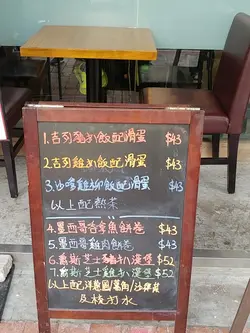 1.吉列豬扒飯配滑蛋 $43
2.吉列雞扒飯配滑蛋 $43
3.沙嗲雞柳飯配滑蛋 $43
以上配熱茶
4.墨西哥吞拿魚餅卷 $43
5.墨西哥雞肉餅卷 $43
6.爵斯芝士豬扒漢堡 $52
7.爵斯芝士雞扒漢堡 $52
以上配洋蔥圈/薯角/沙律菜
及枝汽水